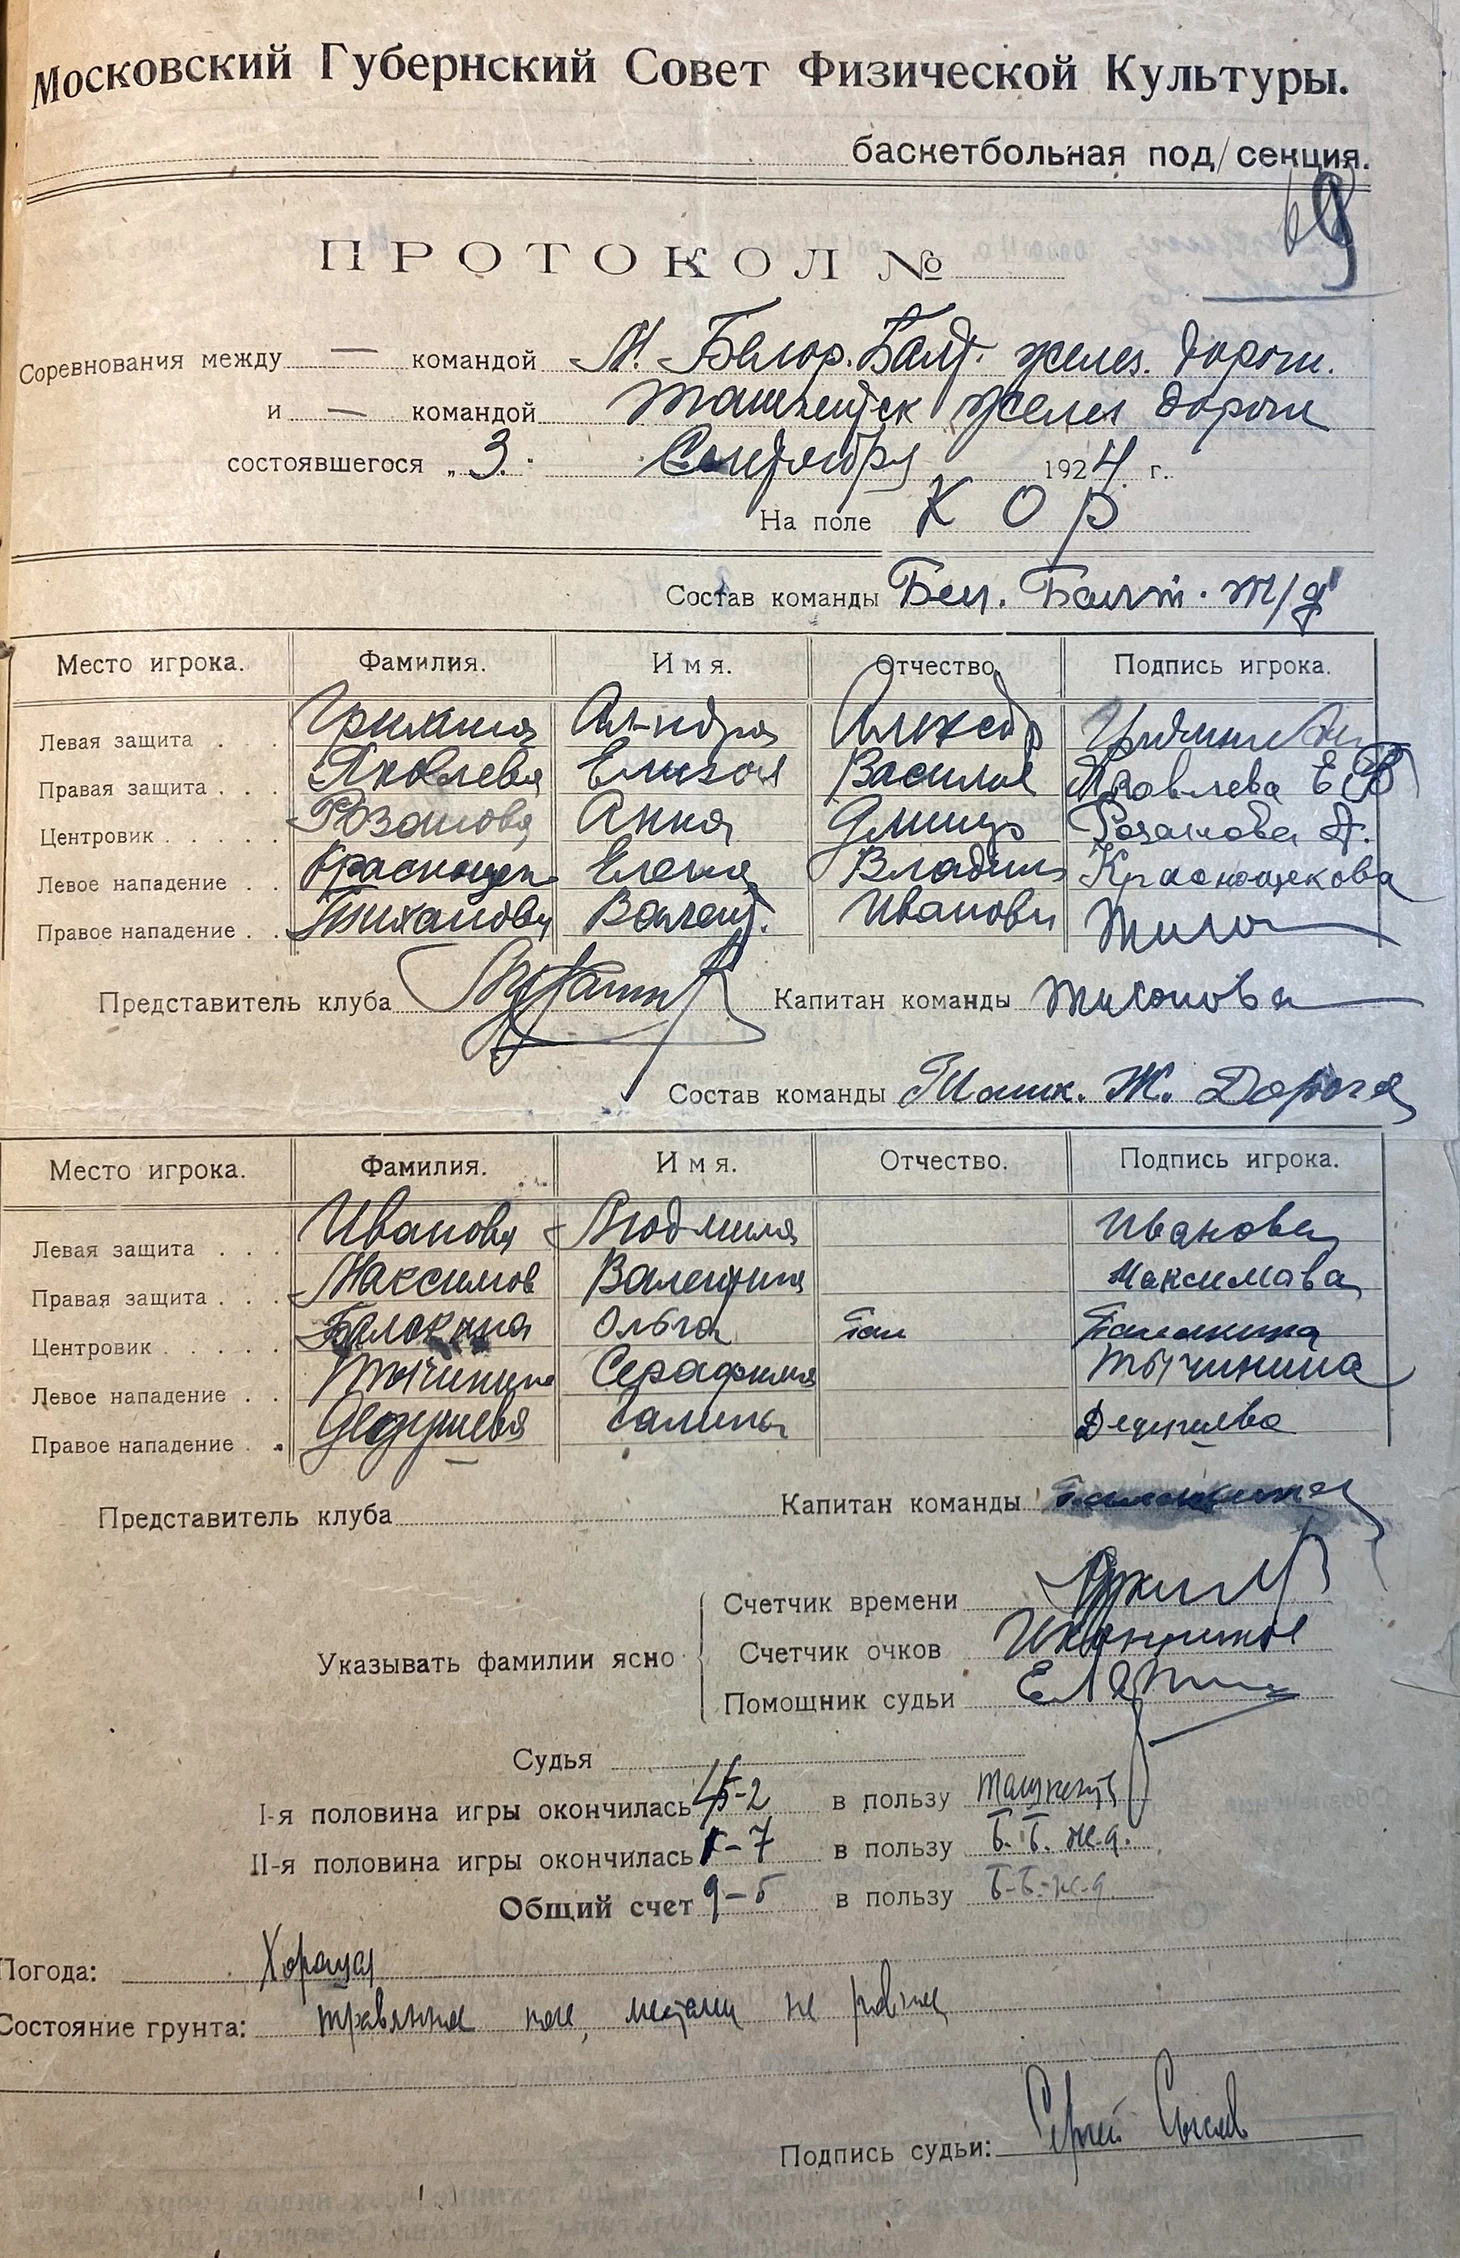 Московский Губернский Совет Физической Культуры.
баскетбольная под/секция.
69
ПРОТОКОЛ №
Соревнования между — командой М. Белор. Балт. желез. дороги.
и — командой Ташкентск желез дороги
состоявшегося „3." Сентября 1924 г.
На поле К О Р
Состав команды Бел. Балт. ж/д
Место игрока. Фамилия. Имя. Отчество. Подпись игрока.
Левая защита . . Ал-ндра Александр
Правая защита . . . Яковлева Елизав Василье Яковлева Е В
Центровик . . . . . Розанова Анна Дмитр Розанова А.
Левое нападение . . Краснощек Елена Владим Краснощекова
Правое нападение . . Тиханова Валент. Ивановн Тихо
Представитель клуба Капитан команды Тихонова
Состав команды Ташк. Ж. Дорога
Место игрока. Фамилия. Имя. Отчество. Подпись игрока.
Левая защита . . . Иванова Людмила Иванова
Правая защита . . . Максимов Валентина Максимова
Центровик . . . . . Балакина Ольга Балакина
Левое нападение . . Тычинина Серафима Тычинина
Правое нападение . . Дедушева Галина Дедушева
Представитель клуба Капитан команды Балакина
Счетчик времени
Указывать фамилии ясно Счетчик очков
Помощник судьи
Судья
I-я половина игры окончилась 4-2 в пользу Ташкентс
II-я половина игры окончилась 1-7 в пользу Б. Б. ж.д.
Общий счет 9-5 в пользу Б-Б-ж-д.
Погода: Хорошая
Состояние грунта: травяное поле, местами не ровное
Подпись судьи: Сергей Сысоев